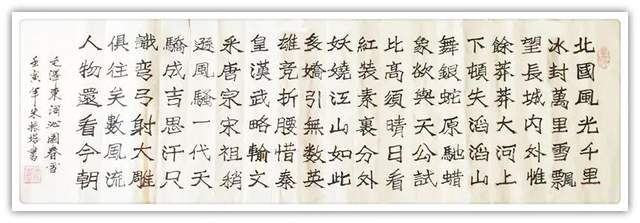 北國風光千里
冰封萬里雪飄
望長城內外惟
餘莽莽大河上
下頓失滔滔山
舞銀蛇原馳蠟
象欲與天公試
比高須晴日看
紅裝素裹分外
妖嬈江山如此
多嬌引無數英
雄競折腰惜秦
皇漢武略輸文
采唐宗宋祖稍
遜風騷一代天
驕成吉思汗只
識彎弓射大雕
俱往矣數風流
人物還看今朝
毛澤東沁園春雪
壬寅年宋振書